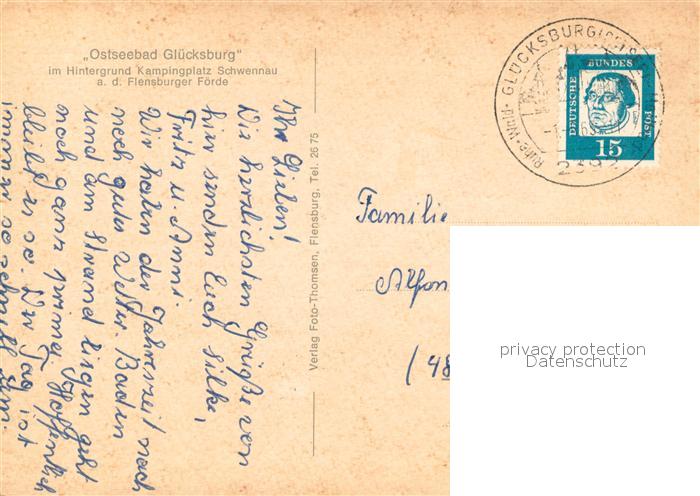 „Ostseebad Glücksburg“
im Hintergrund Kampingplatz Schwennau
a. d. Flensburger Förde
Ihr Lieben!
Die herzlichsten Grüße von
hier senden Euch Silke,
Fritz u. Anni.
Wir haben der Jahreszeit nach
noch gutes Wetter. Baden
und am Strand liegen geht
noch ganz prima. Hoffentlich
bleibt es so. Der Tag ist
immer so schnell
Verlag Foto-Thomsen, Flensburg, Tel. 26 75
GLÜCKSBURG
Ruhe-Wald-
2392
DEUTSCHE
BUNDES
POST
15
Familie
Alfon
(48
privacy protection
Datenschutz